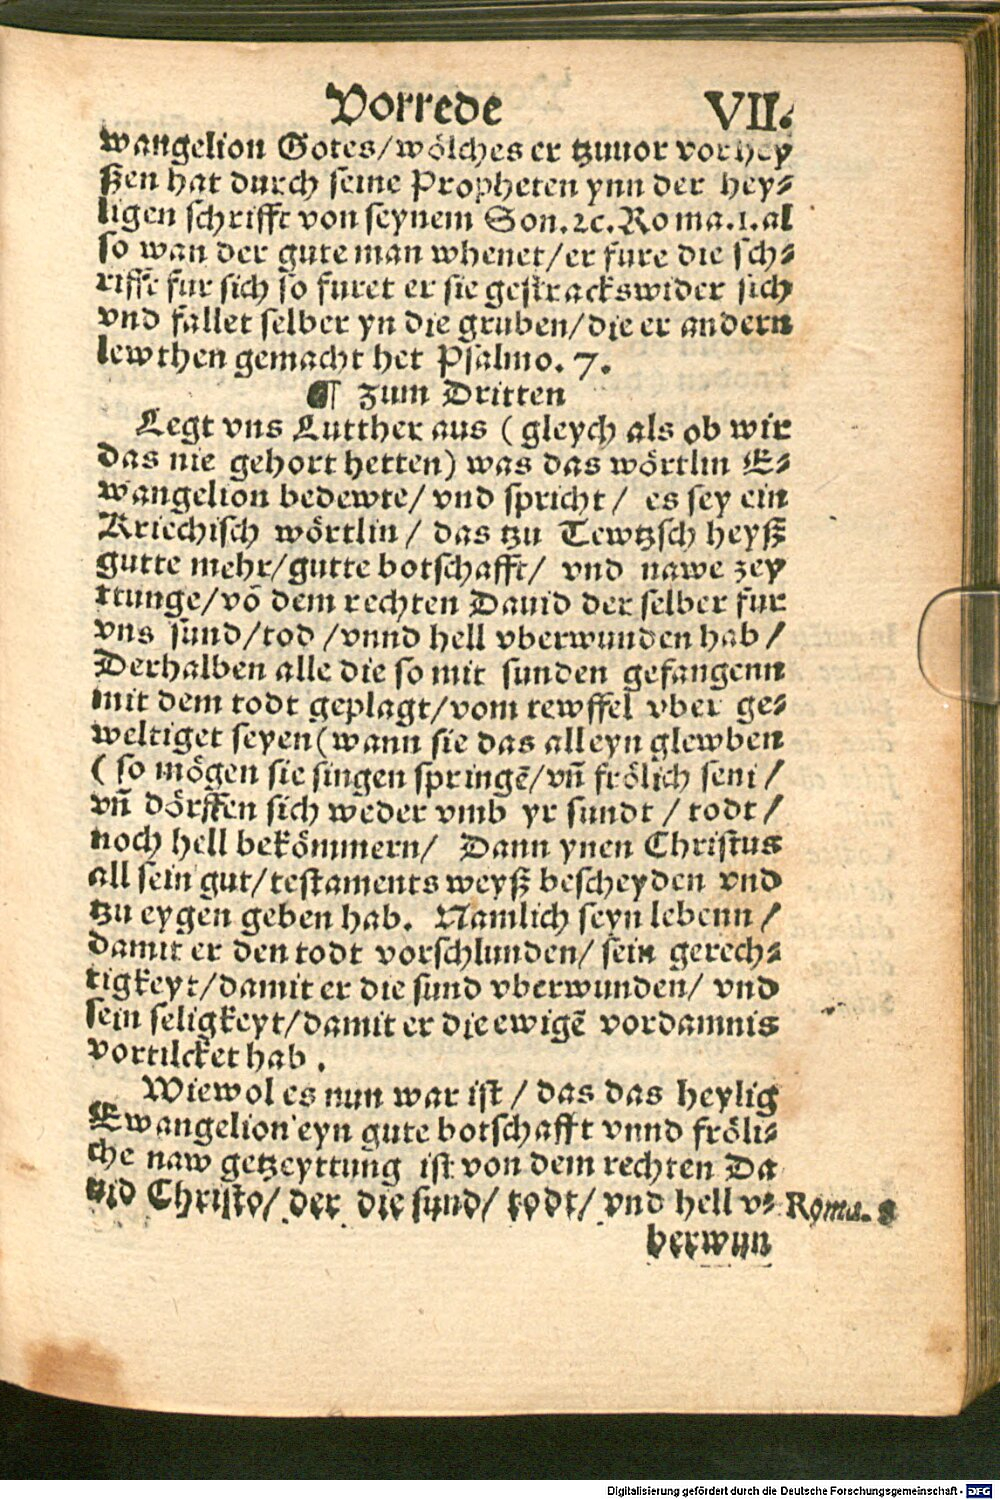 Vorrede VII.
wangelion Gotes/wölches er tzuuor vorhey
ßen hat durch seine Propheten ynn der hey⸗
ligen schrifft von seynem Son.ꝛc.Roma.1.al
so wan der gute man whenet/er fure die sch⸗
rifft fur sich so furet er sie gestrackswider sich
vnd fallet selber yn die gruben/die er andern
lewthen gemacht het Psalmo. 7.
¶ Zum Dritten
Legt vns Lutther aus ( gleych als ob wir
das nie gehort hetten) was das wörtlin E⸗
wangelion bedewte/ vnd spricht/ es sey ein
Kriechisch wörtlin / das tzu Tewtzsch heyß
gutte mehr/gutte botschafft/ vnd nawe zey
ttunge/vō dem rechten Dauid der selber fur
vns sund/tod /vnnd hell vberwunden hab /
Derhalben alle die so mit sunden gefangenn
mit dem todt geplagt/vom tewffel vber ge⸗
weltiget seyen(wann sie das alleyn glewben
( so mögen sie singen springē/vñ frölich seni /
vñ dörffen sich weder vmb yr sundt / todt /
noch hell bekömmern/ Dann ynen Christus
all sein gut/testaments weyß bescheyden vnd
tzu eygen geben hab. Namlich seyn lebenn /
damit er den todt vorschlunden/ sein gerech⸗
tigkeyt/damit er die sund vberwunden/ vnd
sein seligkeyt/damit er die ewigē vordamnis
vortilcket hab .
Wiewol es nun war ist / das das heylig
Ewangelion eyn gute botschafft vnnd fröli⸗
che naw getzeyttung ist von dem rechten Da
uid Christo/ der die sund/ todt/ vnd hell v⸗ Roma. 8
berwun
Digitalisierung gefördert durch die Deutsche Forschungsgemeinschaft - DFG